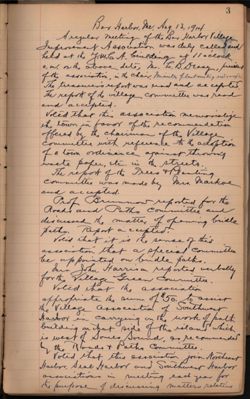 3
Bar Harbor, Me Aug 12, 1914
A regular meeting of the Bar Harbor Village
Improvement Association was duly called and
held at the Y.M.C.A. building at 11 o'clock
a.m. on the above date, Mr. C. B. president
of the association, in the chair.
The treasurer's report was read and accepted
The report of the village committee was read
and accepted.
Voted that this association memorialize
the town in favor of the recommendation
offered by the chairman of the Village
Committee with reference to the adoption
of a town ordinance against throwing
waste paper, etc. in the streets.
The report of the Trees & Planting
committee was made by Mrs. Markoe
and accepted
Prof. Brunnow reported for the
Roads and Paths Committee and
discussed the matter of opening bridle
paths. Report accepted.
Voted that it is the sense of this
association that a special committee
be appointed on bridle paths.
Mrs. John Harrison reported verbally
for the Village Green Committee.
Voted that the association
appropriate the sum of $50. to assist
the Village Association of Southwest
Harbor in carrying on the work of path
building on that side of the island which
is west of Somes Sound, as recommended
by the Roads & Paths Committee.
Voted that this association join Northeast
Harbor, Seal Harbor and Southwest Harbor
associations in meeting each year for
the purpose of discussing matters relative